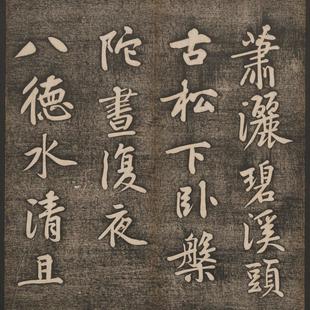 蕭灑碧溪頭
古松下臥槃
陀晝復夜
八德水清且